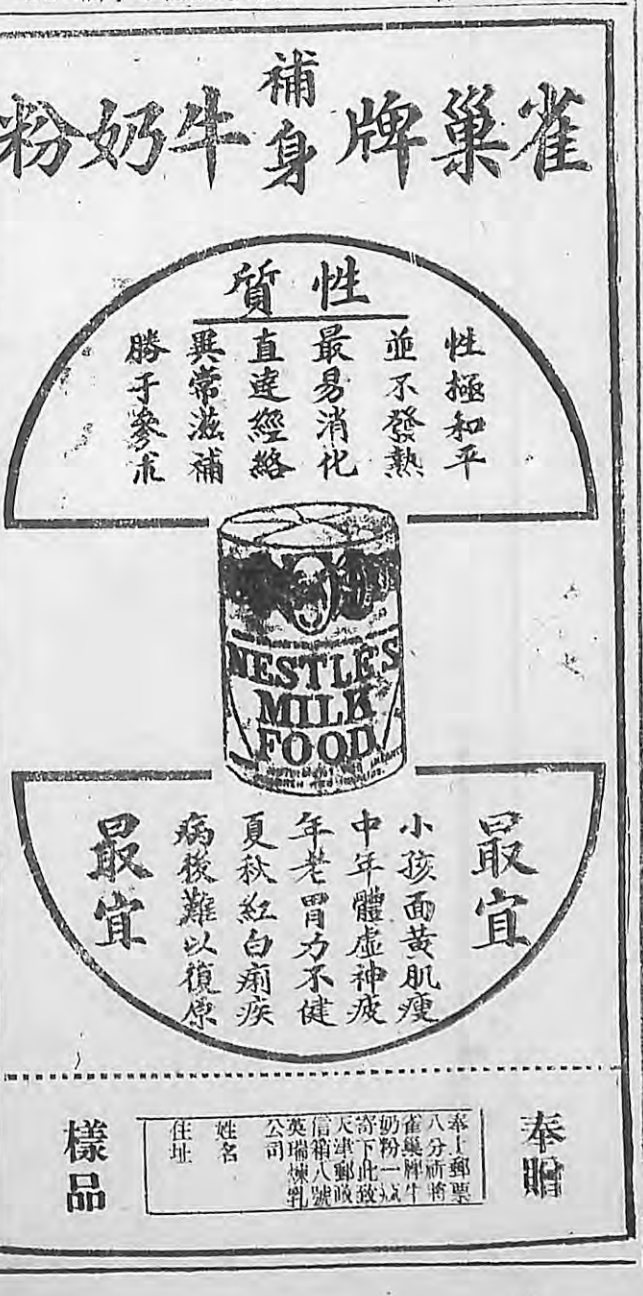 雀巢牌補身牛奶粉
性質
性極和平
並不發熱
最易消化
直達經絡
異常滋補
勝于參朮
NESTLE'S
MILK
FOOD
最宜
小孩面黃肌瘦
中年體虛神疲
年老胃力不健
夏秋紅白痢疾
病後難以復原
最宜
奉贈
奉上郵票
八分祈將
雀巢牌牛
奶粉一
寄下此致
天津郵政
信箱八號
英瑞煉乳
公司
姓名
住址
樣品